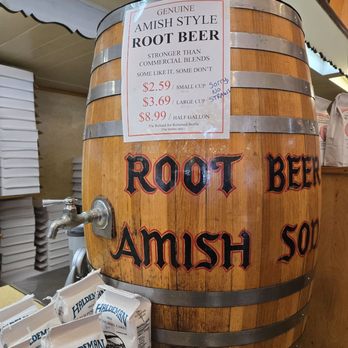 GENUINE
AMISH STYLE
ROOT BEER
STRONGER THAN
COMMERCIAL BLENDS.
SOME LIKE IT, SOME DON'T
$2.59 / SMALL CUP
$3.69 / LARGE CUP
$8.99 / HALF GALLON
SORRY
NO
STRAWS
ROOT BEER
AMISH SOD
HALDEMAN
HALDEMAN
HALDEMAN